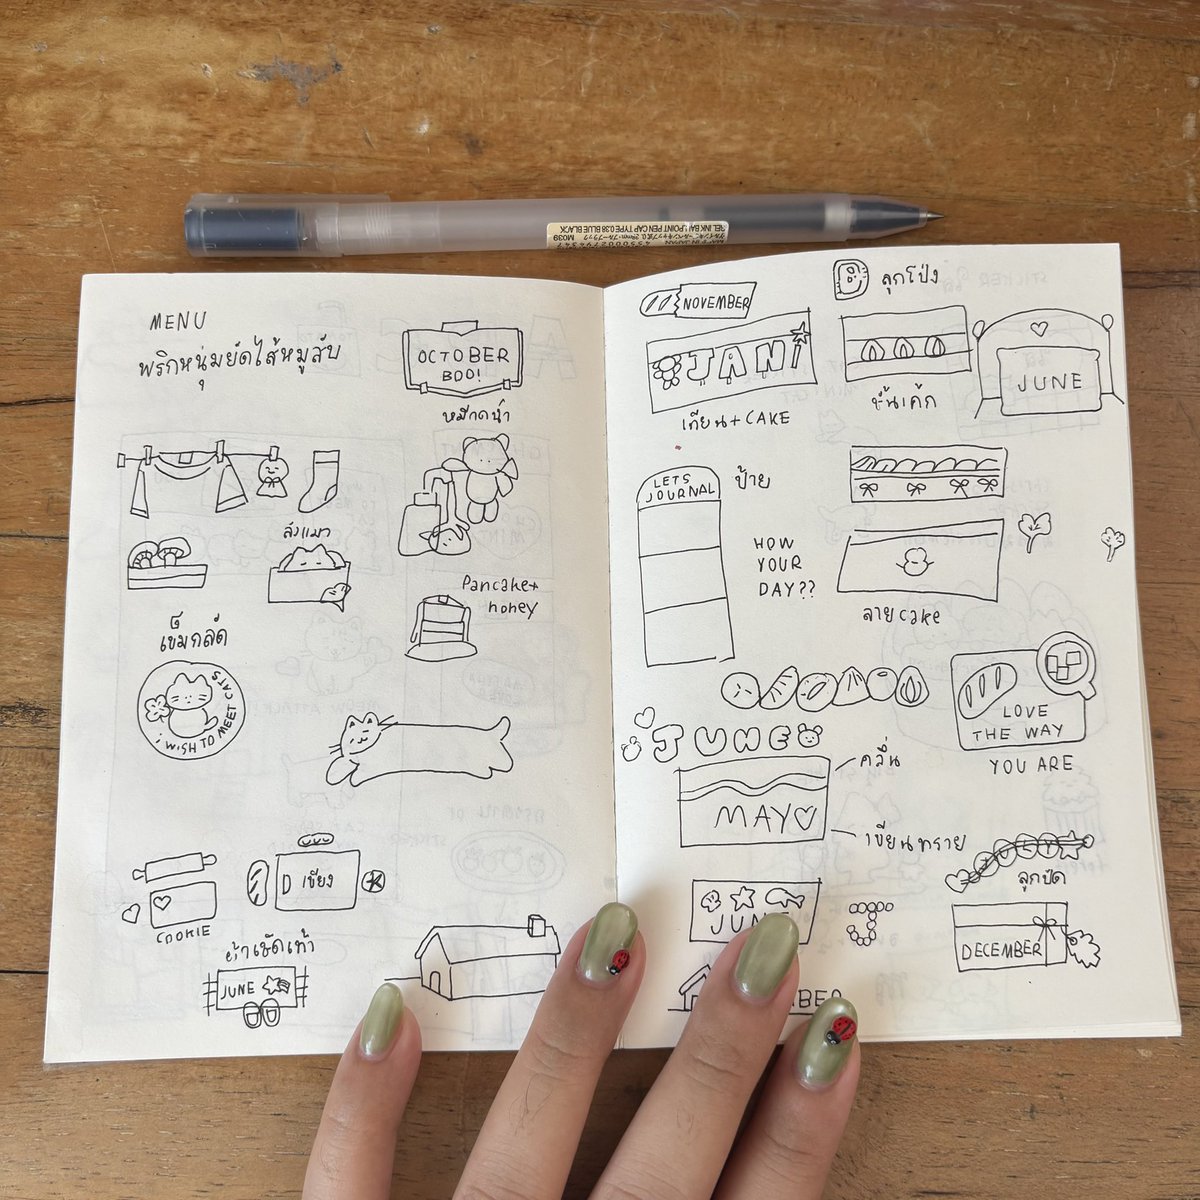 GEL INK BALLPOINT PEN CAP TYPE 0.38 BLUE BLACK
MADE IN JAPAN
M039
MENU
พริกหนุ่มยัดไส้หมูสับ
OCTOBER
BOO!
หมีาดน้ำ
ส่งแมว
Pancake+
honey
เข็มกลัด
I WISH TO MEET CATS
COOKIE
เขียง
ผ้าเช็ดเท้า
JUNE
NOVEMBER
ลูกโป่ง
JANI
เทียน+CAKE
ชั้นเค้ก
JUNE
LETS
JOURNAL
ป้าย
HOW
YOUR
DAY??
ลายcake
LOVE
THE WAY
YOU ARE
JUNE
คลื่น
MAY
เขียนทราย
JULY
ลูกปัด
JUNE
J
DECEMBER